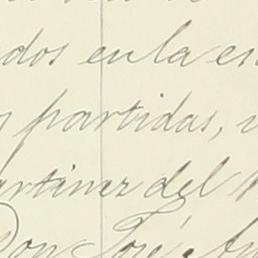 dos en la es
partidas,
artinez del
Don José